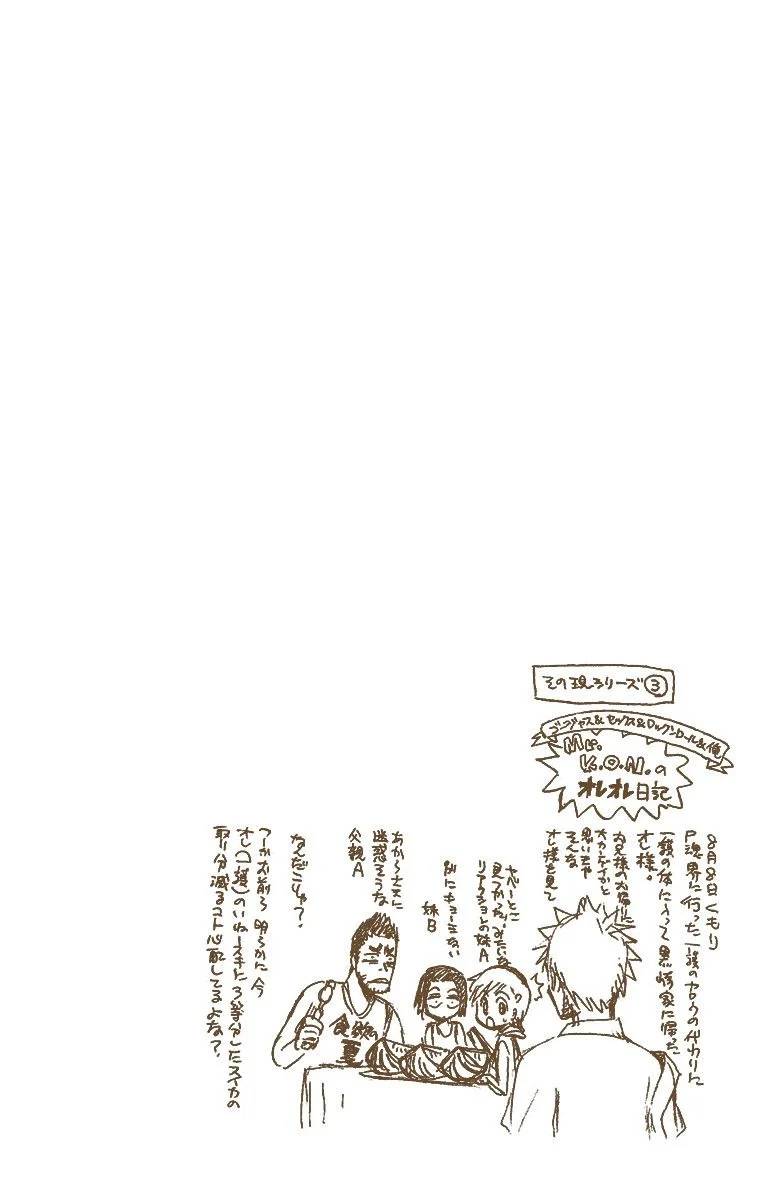 その頃シリーズ③
ゴージャス&セックス&ロックンロール&俺
Mr.
K.O.N.の
オレオレ日記
8月8日くもり
尸魂界に行った一護のヤロウの代わりに
一護の体に入って黒崎家に帰った
オレ様。
お兄様のお帰りに
大カンゲイかと
思いきや
そんな
オレ様を見て
ヤベーとこ
見つかった。みたいな
リアクションの妹A
別にキョーミない
妹B
あからさまに
迷惑そうな
父親A
なんだこりゃ?
つーかお前ら 明らかに今
オレ(一護)のいねースキに3等分したスイカの
取り分減るコト心配してるよな?
食欲の
夏